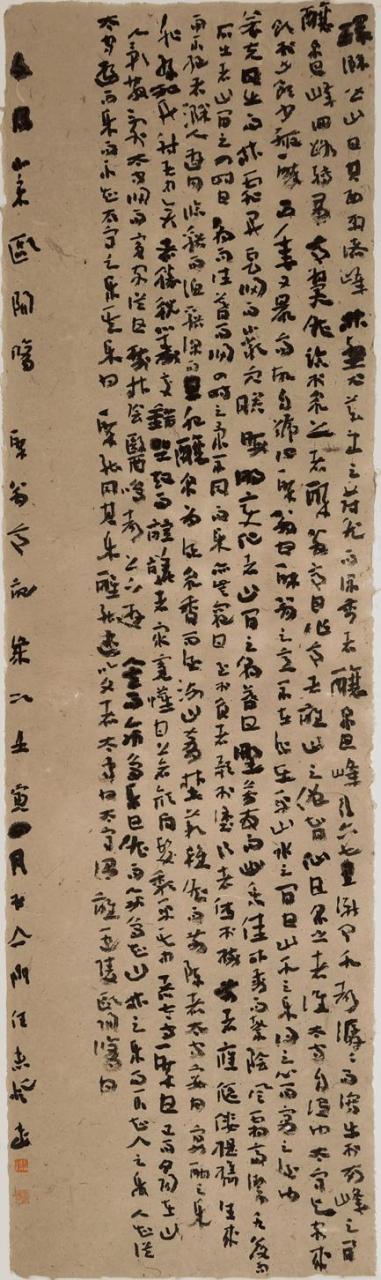 環滁皆山也其西南諸峰林壑尤美望之蔚然而深秀者釀泉也峰行六七里漸聞水聲潺潺而瀉出於兩峰之間
釀泉也峰回路轉有亭翼然臨於泉上者醉翁亭也作亭者誰山之僧智仙也名之者誰太守自謂也太守與客來
飲於此飲少輒醉而年又最高故自號曰醉翁也醉翁之意不在酒在乎山水之間也山水之樂得之心而寓之酒也
若夫日出而林霏開雲歸而巖穴暝晦明變化者山間之朝暮也野芳發而幽香佳木秀而繁陰風霜高潔水落而
石出者山間之四時也朝而往暮而歸四時之景不同而樂亦無窮也至於負者歌於塗行者休於樹前者呼後者應傴僂提攜往來
而不絕者滁人遊也臨谿而漁谿深而魚肥釀泉為酒泉香而酒洌山肴野蔌雜然而前陳者太守宴也宴酣之樂
非絲非竹射者中弈者勝觥籌交錯坐起而諠譁者眾賓懽也蒼顏白髮頹乎其中者太守醉也已而夕陽在山
人影散亂太守歸而賓客從也樹林陰翳鳴聲上下遊人去而禽鳥樂也然而禽鳥知山林之樂而不知人之樂人知從
太守遊而樂而不知太守之樂其樂也醉能同其樂醒能述以文者太守也太守謂誰廬陵歐陽修也
宋歐陽脩醉翁亭記歲次壬寅四月於